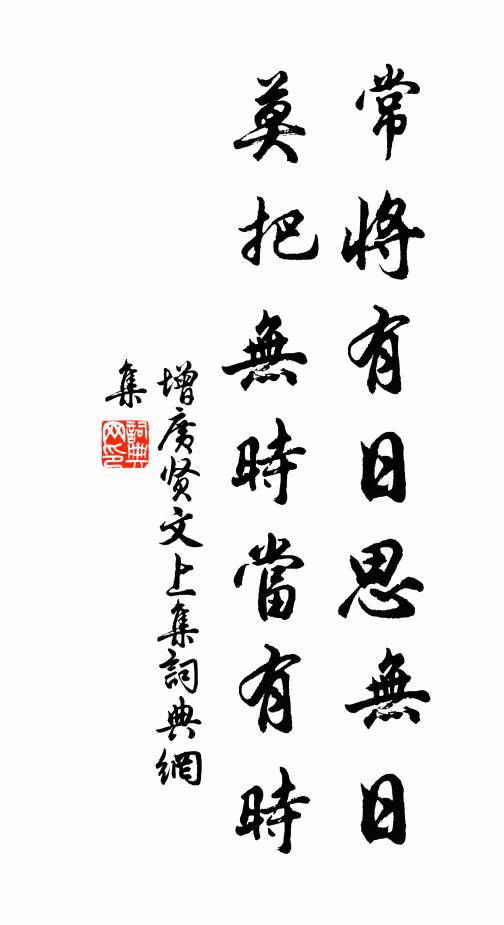 常將有日思無日
莫把無時當有時
增廣贤文上集詞典網
集
詞典
网印